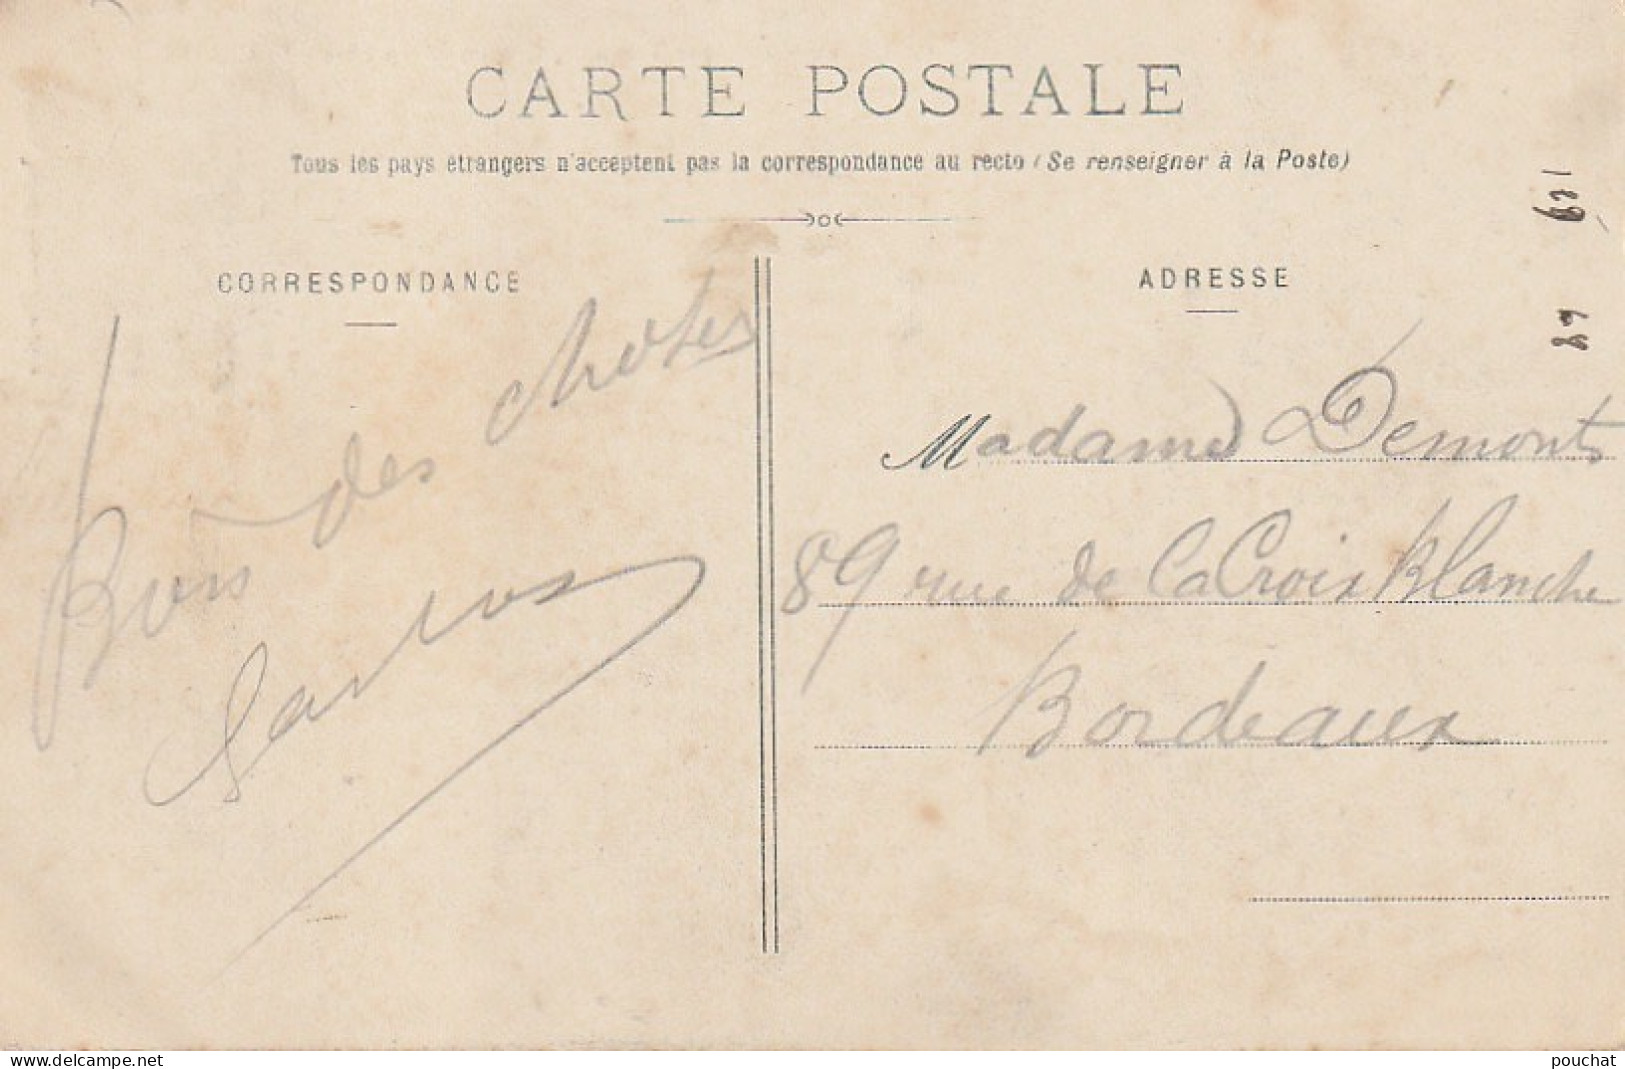 CARTE POSTALE
Tous les pays étrangers n'acceptent pas la correspondance au recto (Se renseigner à la Poste)
CORRESPONDANCE
ADRESSE
des choses
Madame Demonts
89 rue de La Croix Blanche
Bordeaux
www.delcampe.net
pouchat